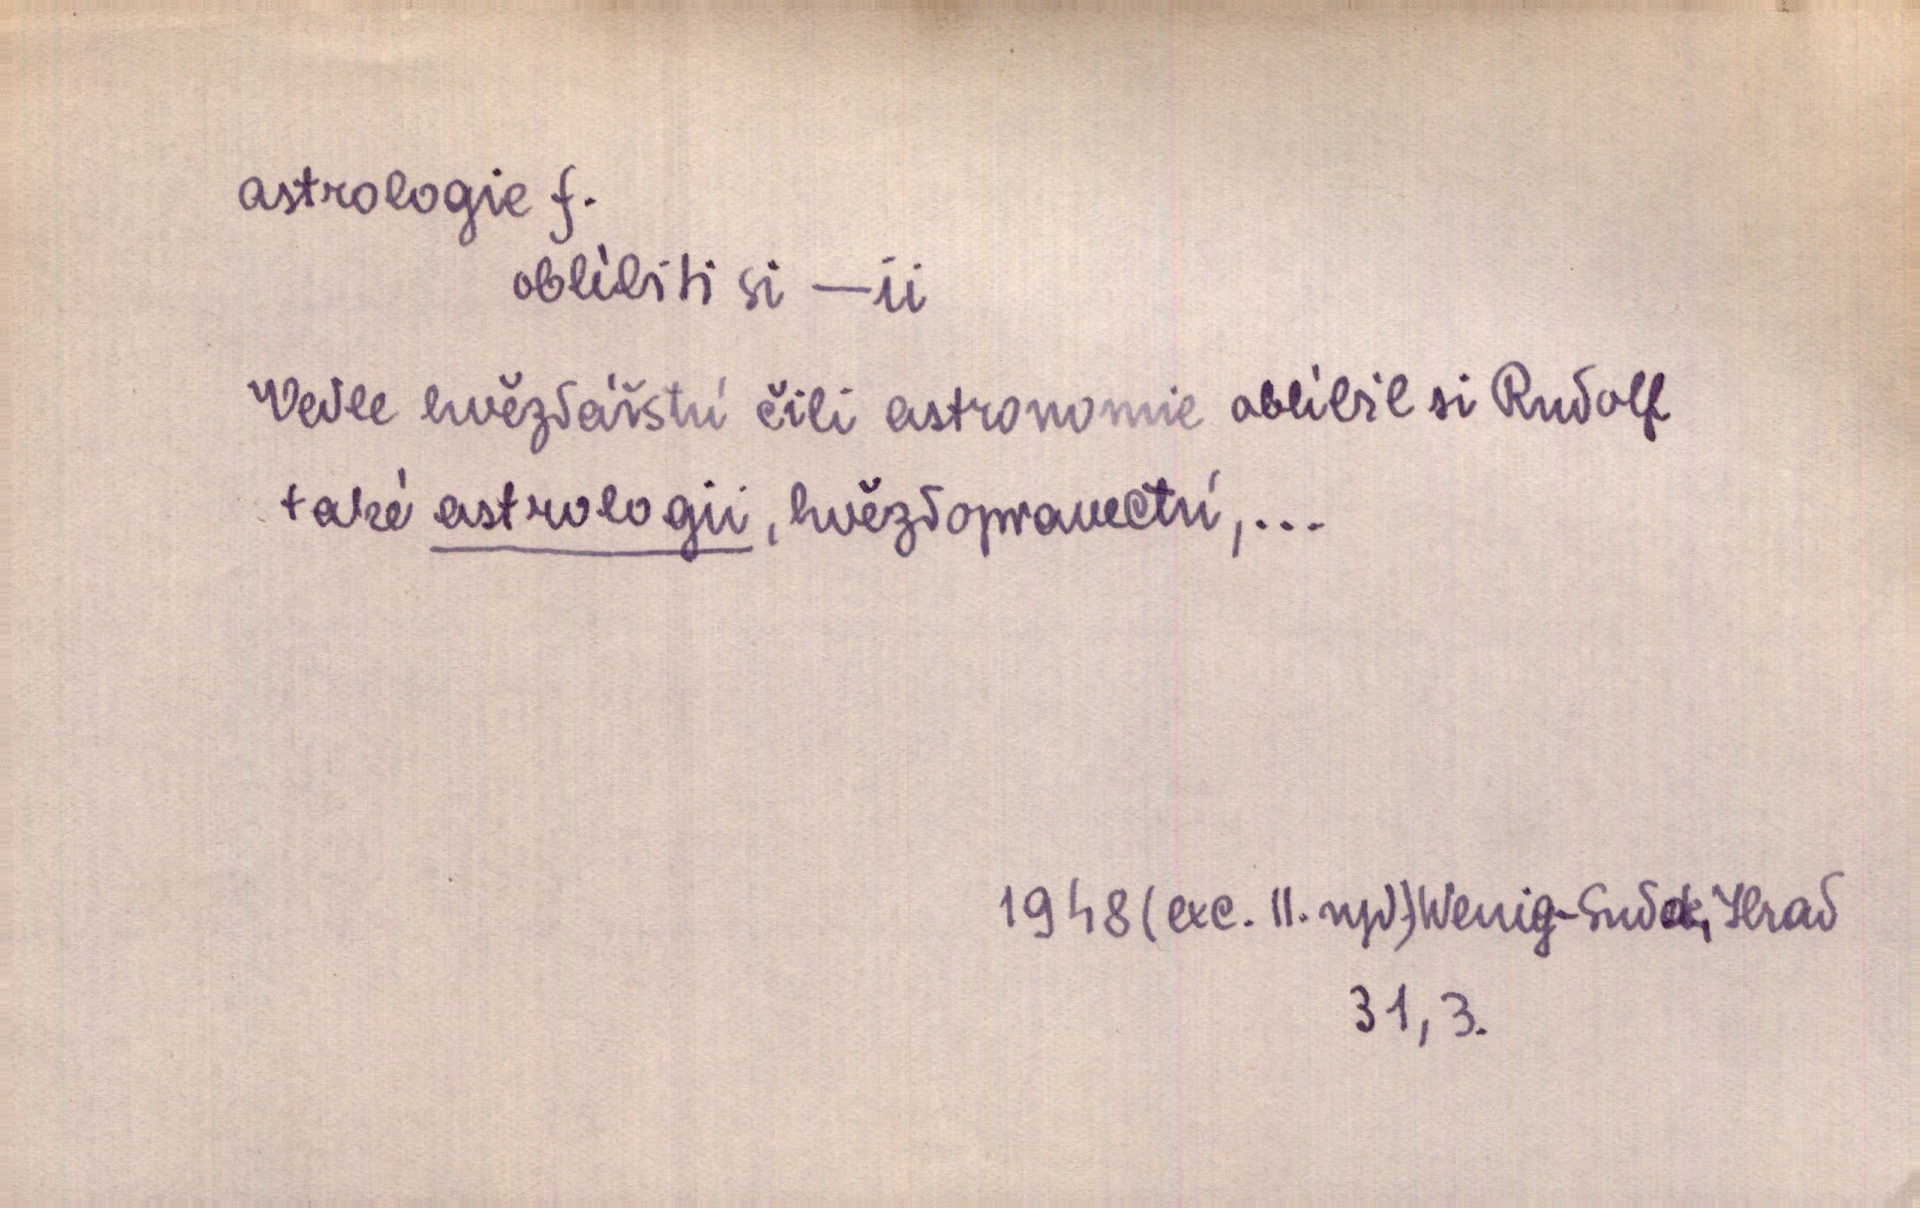 astrologie f.
oblíbiti si —ii
Vedle hvězdářství čili astronomie oblíbil si Rudolf
také astrologii, hvězdopravectví,...
1948 (exc. II. vyd) Wenig-Sudek, Hrad
31, 3.